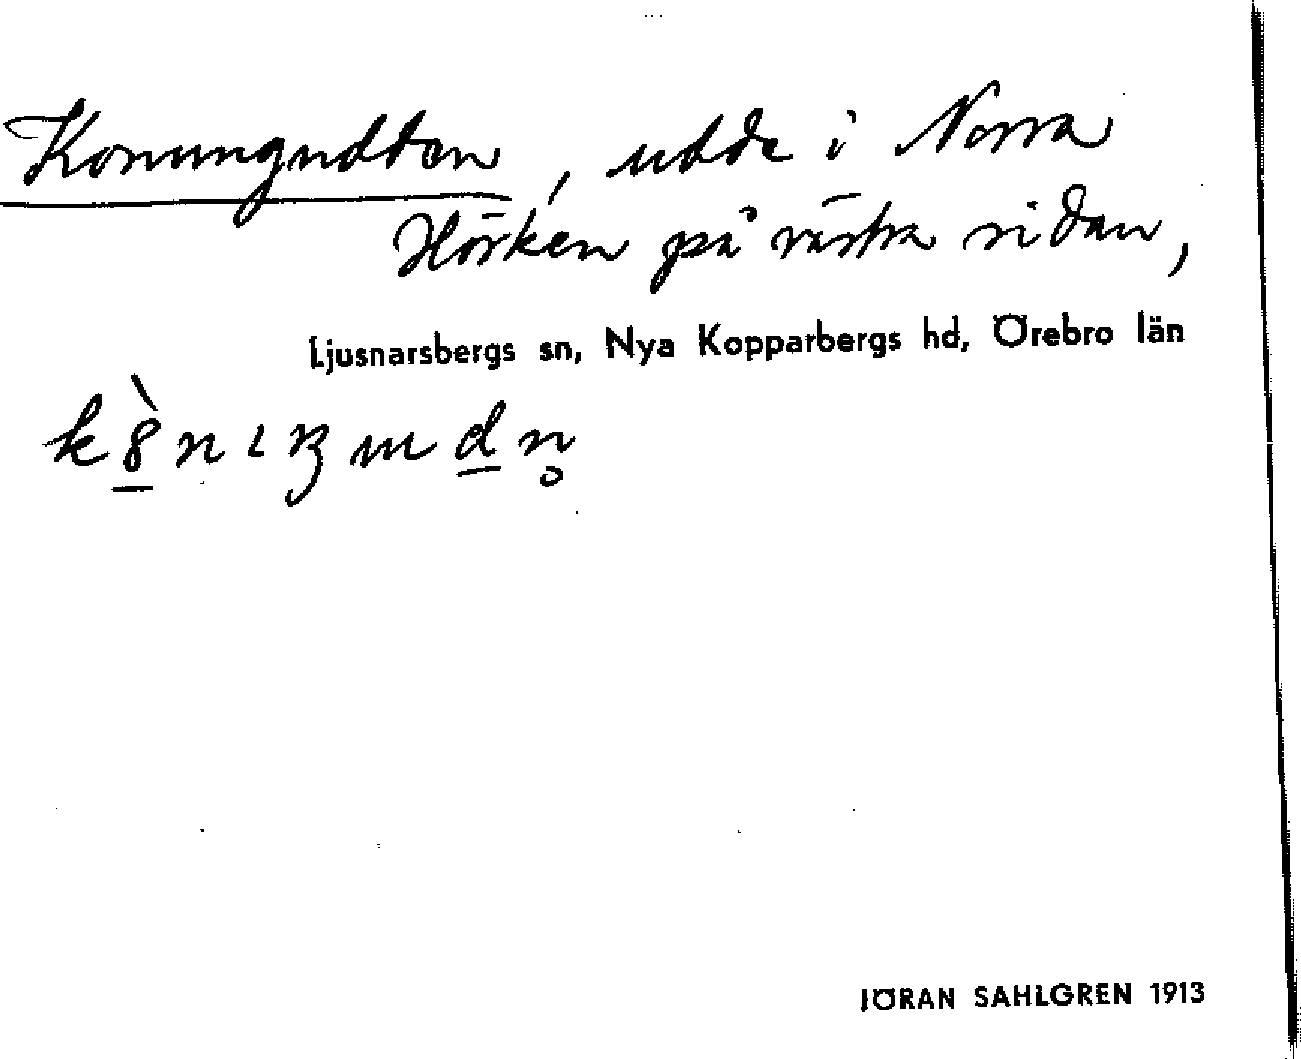 Konungudden, udde i Norra
Hörken på västra sidan,
Ljusnarsbergs sn, Nya Kopparbergs hd, Örebro län
JÖRAN SAHLGREN 1913